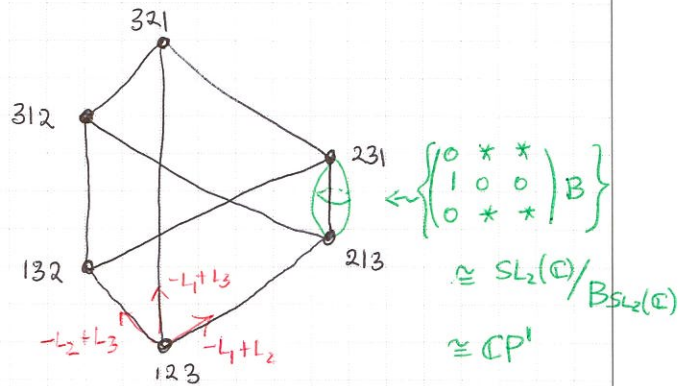 321
312
231
132
213
123
-L₁+L₃
-L₂+L₃
-L₁+L₂
{( 0 * *
1 0 0
0 * * ) B}
≅ SL₂(ℂ)/B_{SL₂(ℂ)}
≅ ℂP¹